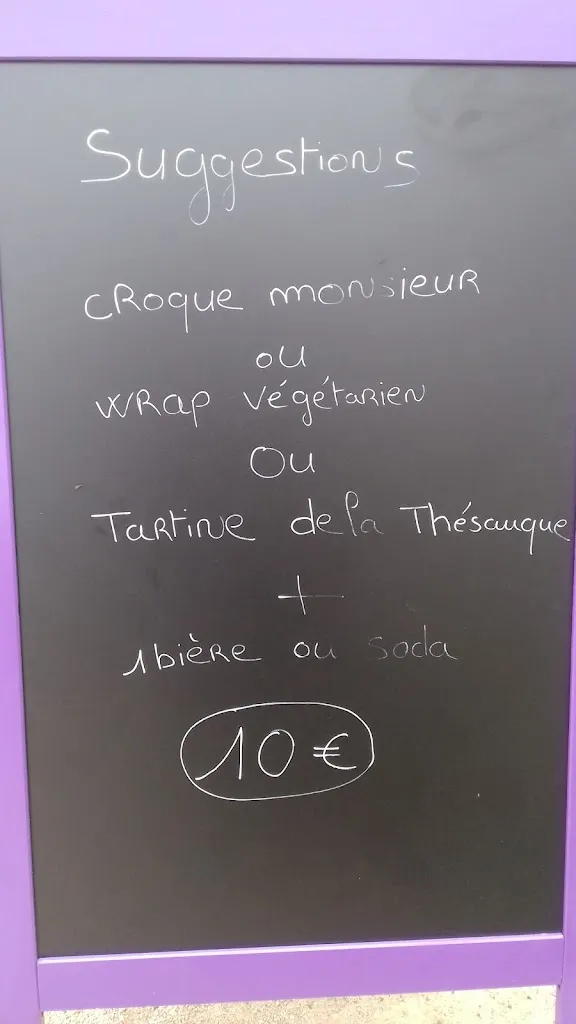 Suggestions
croque monsieur
ou
wrap végétarien
ou
Tartine de la Thésauque
+
1 bière ou soda
10 €